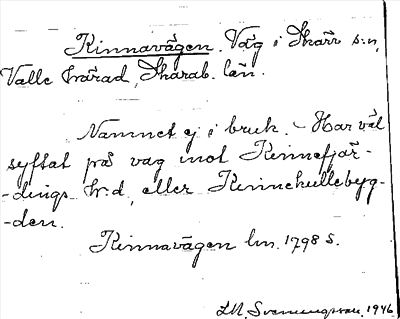 Kinnavägen. Väg i Skärv s:n,
Valle härad, Skarab. län.
Namnet ej i bruk. – Har väl
syftat på väg mot Kinnefjär-
-dings h:d, eller Kinnekullebyg-
-den.
Kinnavägen lm. 1798 S.
1946